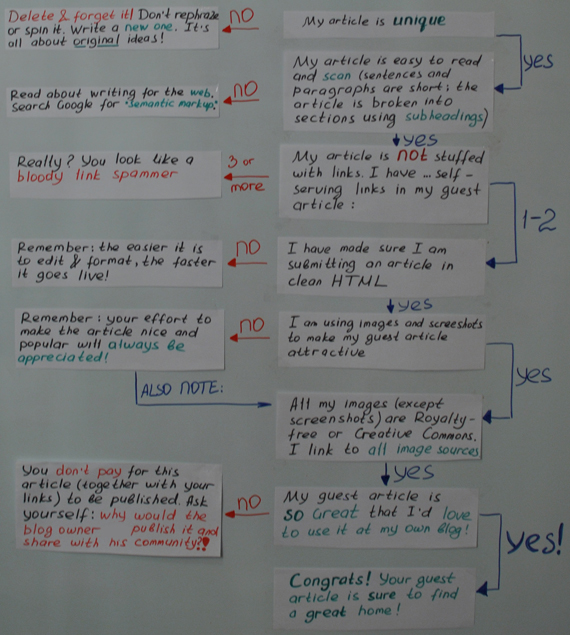 Delete & forget it! Don't rephrase
or spin it. Write a new one. It's
all about original ideas!
NO
My article is unique
yes
My article is easy to read
and scan (sentences and
paragraphs are short; the
article is broken into
sections using subheadings)
NO
Read about writing for the web.
Search Google for "semantic markup."
yes
My article is not stuffed
with links. I have ... self-
serving links in my guest
article:
3 or
more
Really? You look like a
bloody link spammer
1-2
I have made sure I am
submitting an article in
clean HTML
NO
Remember: the easier it is
to edit & format, the faster
it goes live!
yes
I am using images and screeshots
to make my guest article
attractive
NO
Remember: your effort to
make the article nice and
popular will always be
appreciated!
ALSO NOTE:
yes
All my images (except
screenshots) are Royalty-
free or Creative Commons.
I link to all image sources
yes
My guest article is
SO Great that I'd love
to use it at my own blog!
NO
You don't pay for this
article (together with your
links) to be published. Ask
yourself: why would the
blog owner publish it and
share with his community?!
yes!
Congrats! Your guest
article is sure to find
a great home!